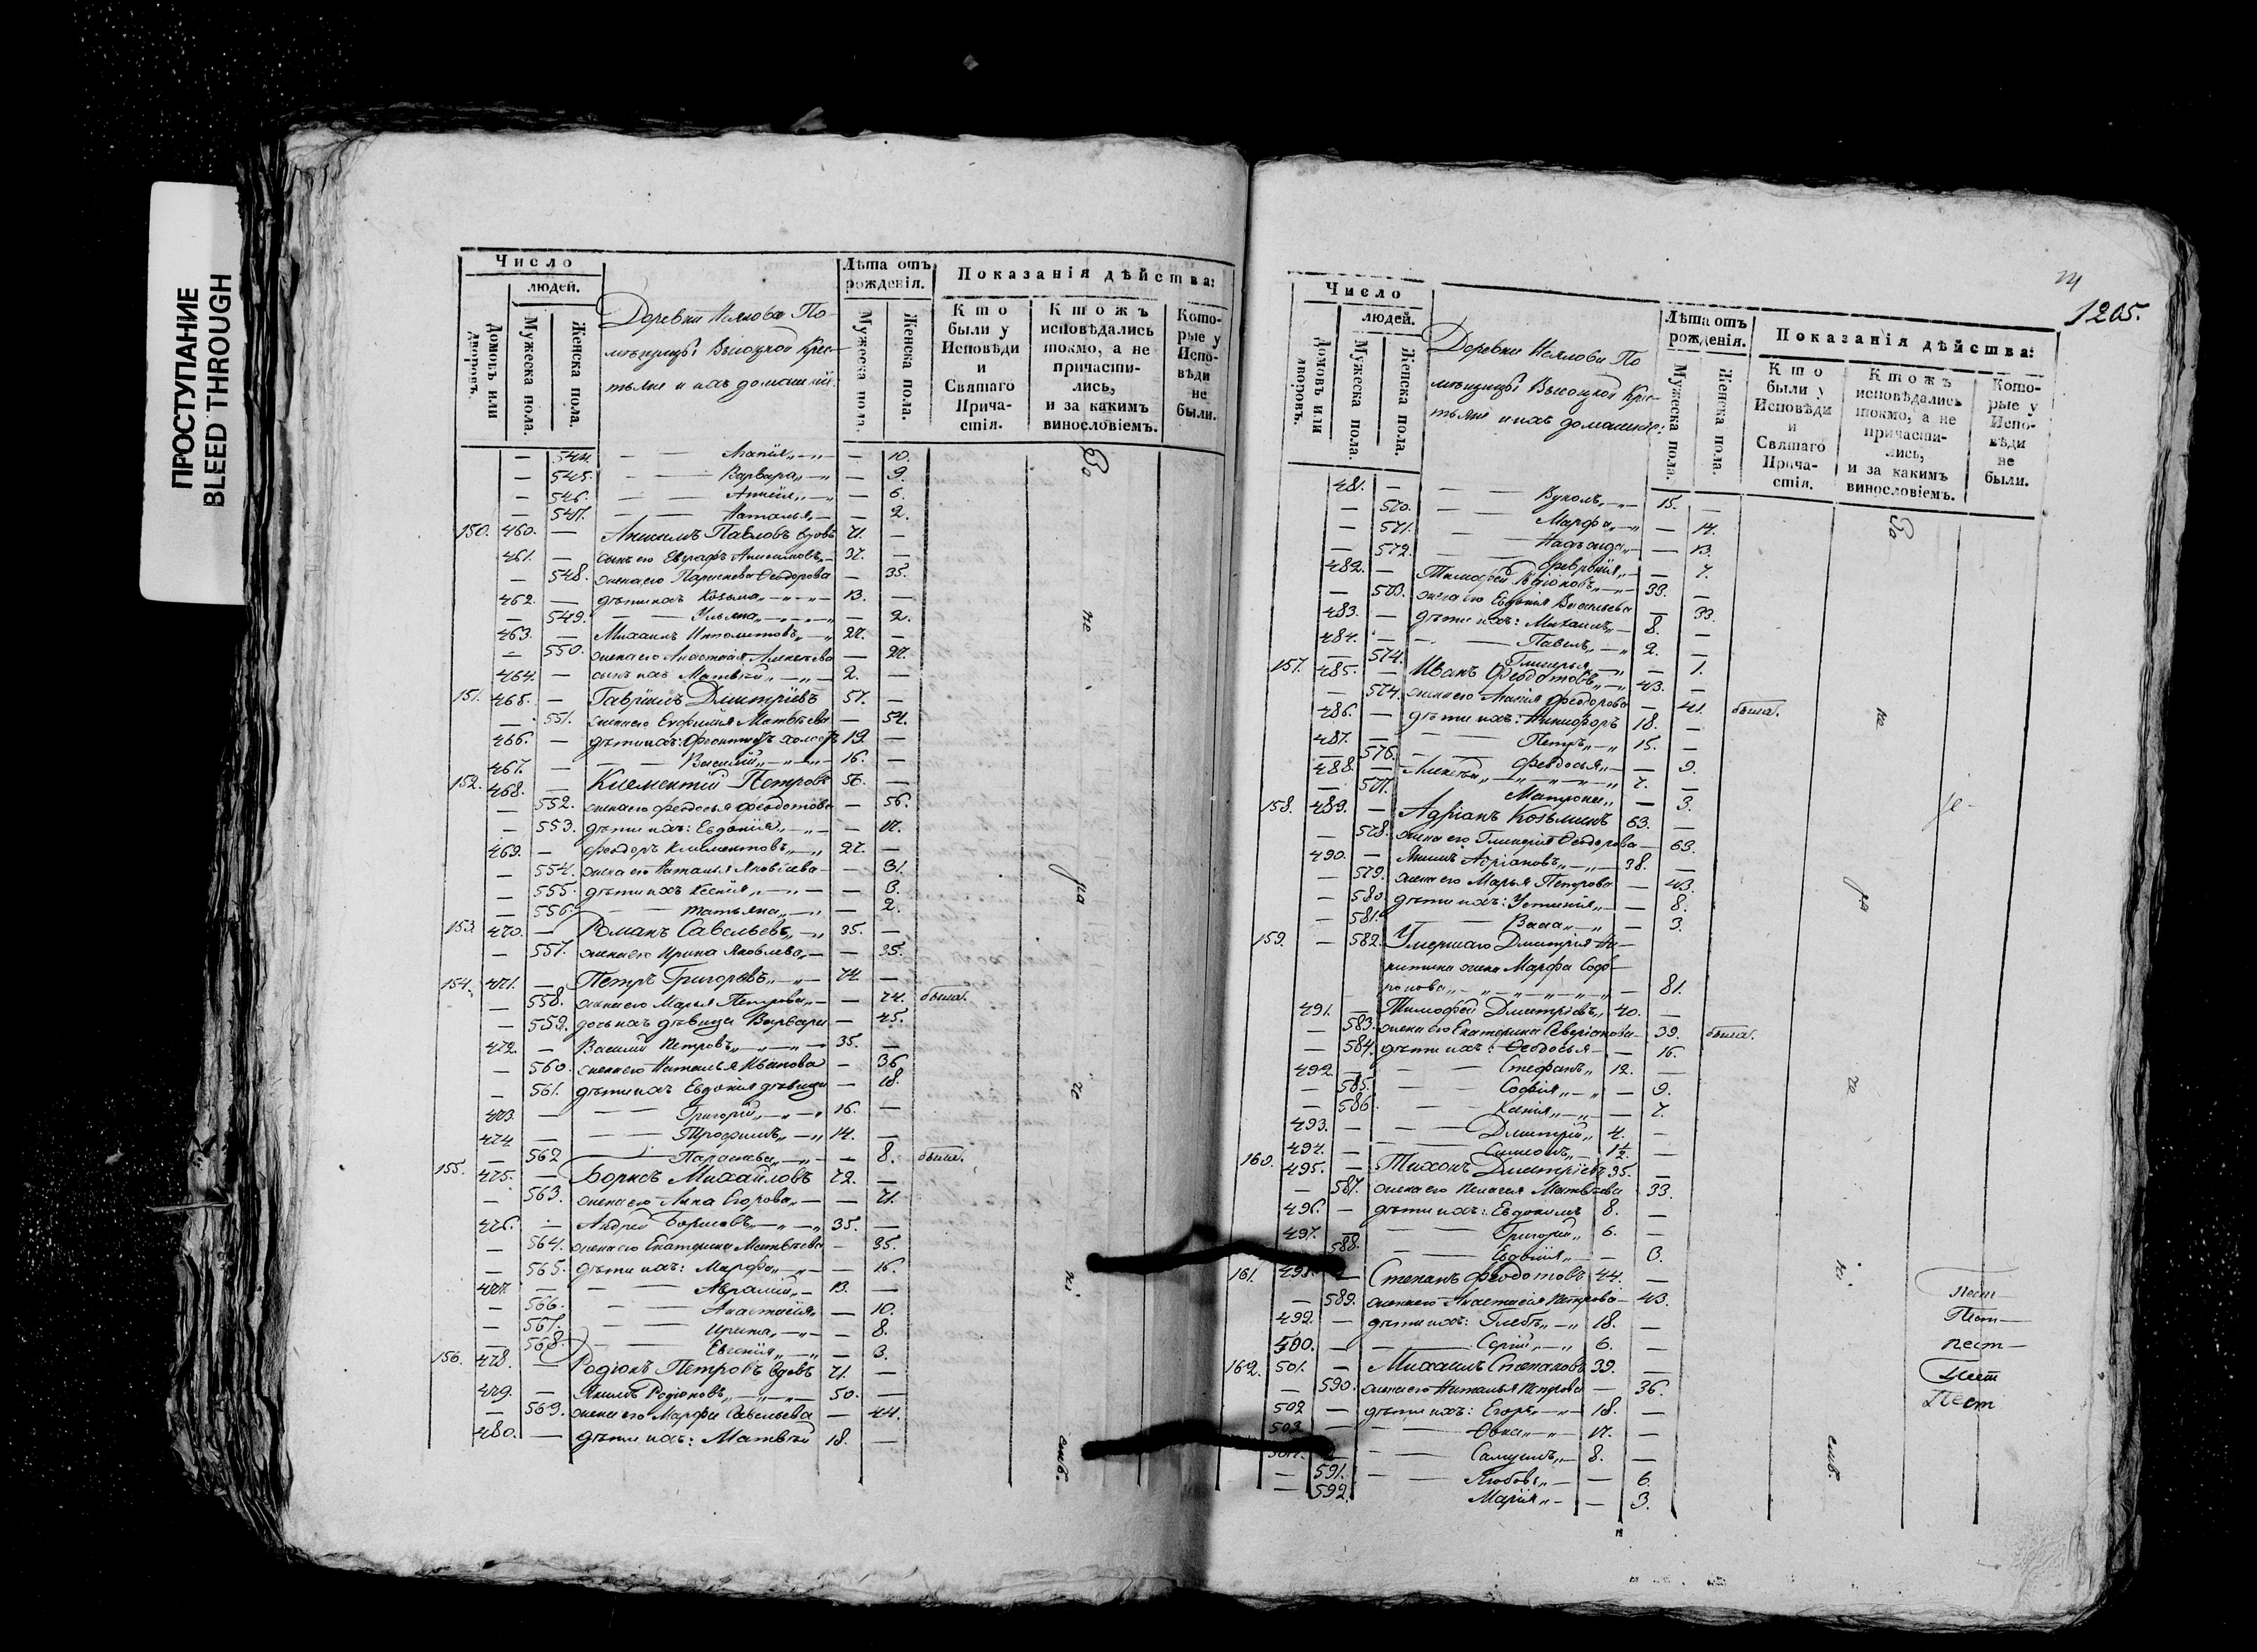 ПРОСТУПАНИЕ
BLEED THROUGH
Число
людей.
Домовъ или дворовъ.
Мужеска пола.
Женска пола.
Лѣта отъ рожденія.
Мужеска пола.
Женска пола.
Показанія дѣйства:
Кто были у Исповѣди и Святаго Причастія.
Ктожъ исповѣдались токмо, а не причастились, и за какимъ винословіемъ.
Которые у Исповѣди не были.
Деревни По-
мѣщицы Высоцкой Крес-
тьяне и ихъ домашніи
— 544. — — Агапія — 10.
— 545. — — Варвара — 9.
— 546. — — — 6.
— 547. — — Наталья — 2.
150. 460. — Анисимъ Павловъ вдовъ 71. —
461. — сынъ его Евграфъ Анисимовъ 37. —
— 548. жена его Парасковья Ѳеодорова — 35.
462. — дѣти ихъ Козьма 13. —
— 549. — — Ульяна — 2.
463. — Михаилъ Ипполитовъ 27. —
— 550. жена его Анастасія Алексѣева — 27.
464. — сынъ ихъ Матвѣй 2. —
151. 465. — Гавріилъ Дмитріевъ 57. —
— 551. жена его Евфимія Матвѣева — 54.
466. — дѣти ихъ: Феоктистъ холостъ 19. —
467. — — Василій 16. —
152. 468. — Климентій Петровъ 56. —
— 552. жена его Феодосья Феодотова — 56.
— 553. дѣти ихъ: Евдокія — 17.
469. — Феодоръ Климентовъ 27. —
— 554. жена его Наталья Яковлева — 31.
— 555. дѣти ихъ Ксенія — 3.
— 556. — — Татьяна — 2.
153. 470. — Романъ Савельевъ 35. —
— 557. жена его Ирина Яковлева — 35.
154. 471. — Петръ Григорьевъ 74. —
— 558. жена его Марья Петрова — 74. была.
— 559. дочь ихъ дѣвица Варвара — 45.
472. — Василій Петровъ 35. —
— 560. жена его Наталья Иванова — 36
— 561. дѣти ихъ Евдокія дѣвица — 18.
473. — — Григорій 16. —
474. — — Трофимъ 14. —
— 562 — — Парасковья — 8. была.
155. 475. — Борисъ Михайловъ 72. —
— 563. жена его Анна Егорова — 71.
476. — Андрей Борисовъ 35. —
— 564. жена его Екатерина Матвѣева — 35.
— 565. дѣти ихъ: Марфа — 16.
477. — — Аврамій 13. —
— 566. — — Анастасія — 10.
— 567. — — Ирина — 8.
— 568. — — Евгенія — 3.
156. 478. — Родіонъ Петровъ вдовъ 71. —
479. — Якимъ Родіоновъ 50. —
— 569. жена его Марфа Савельева — 44.
480. — дѣти ихъ: Матвѣй 18. —
Во
не
ра
че
ні
емъ.
1205.
Число
людей.
Домовъ или дворовъ.
Мужеска пола.
Женска пола.
Лѣта отъ рожденія.
Мужеска пола.
Женска пола.
Показанія дѣйства:
Кто были у Исповѣди и Святаго Причастія.
Ктожъ исповѣдались токмо, а не причастились, и за какимъ винословіемъ.
Которые у Исповѣди не были.
Деревни По
мѣщицы Высоцкой Крес-
тьяне и ихъ домашніе:
481. — — Вуколъ 15. —
— 570. — — Марфа — 14.
— 571. — — Надежда — 13.
— 572. — — Февронія — 7.
482. — Тимофей Родіоновъ 33. —
— 573. жена его Евдокія Васильева — 33.
483. — дѣти ихъ: Михаилъ 8. —
484. — — Павелъ 2. —
— 574. Гликерья — 1.
157. 485. — Иванъ Феодотовъ 43. —
— 574. жена его Агапія Феодорова — 41. была.
486. — дѣти ихъ: Никифоръ 18. —
487. — — Петръ 15. —
— 576. — — Феодосья — 9.
488. — Алексѣй 7. —
— 577. Матрона — 3.
158. 489. — Адріанъ Козьминъ 63. —
— 578. жена его Гликерія Ѳеодорова — 63.
490. — Якимъ Адріановъ 38. —
— 579. жена его Марья Петрова — 43.
— 580. дѣти ихъ: Устинія — 8.
— 581. — — Васса — 3.
159. — 582. Умершаго Дмитрія Ни-
китина жена Марфа Соф-
ронова — 81.
491. — Тимофей Дмитріевъ 40. —
— 583. жена его Екатерина Северіанова — 39. была.
— 584. дѣти ихъ: Ѳеодосья — 16.
492. — — Стефанъ 12. —
— 585. — — Софія — 9.
— 586. — — Ксенія — 7.
493. — — Дмитрій 4. —
494. — — Симеонъ 1½. —
160. 495. — Тихонъ Дмитріевъ 35. —
— 587. жена его Пелагея Матвѣева — 33.
496. — дѣти ихъ: Евдокимъ 8. —
497. — — Григорій 6. —
588. — — Евдокія — 3.
161. 498. — Степанъ Феодотовъ 44. —
— 589. жена его Анастасія Петрова — 43.
499. — дѣти ихъ: Глебъ 18. —
500. — — Сергій 6. —
162. 501. — Михаилъ Степановъ 39. —
— 590. жена его Наталья Петрова — 36.
502 — дѣти ихъ: Егоръ 18. —
503 — — 17. —
— — Самуилъ 8. —
— 591. — — Любовь — 6.
— 592. Марія — 3.
Во
не
ра
че
ні
емъ.